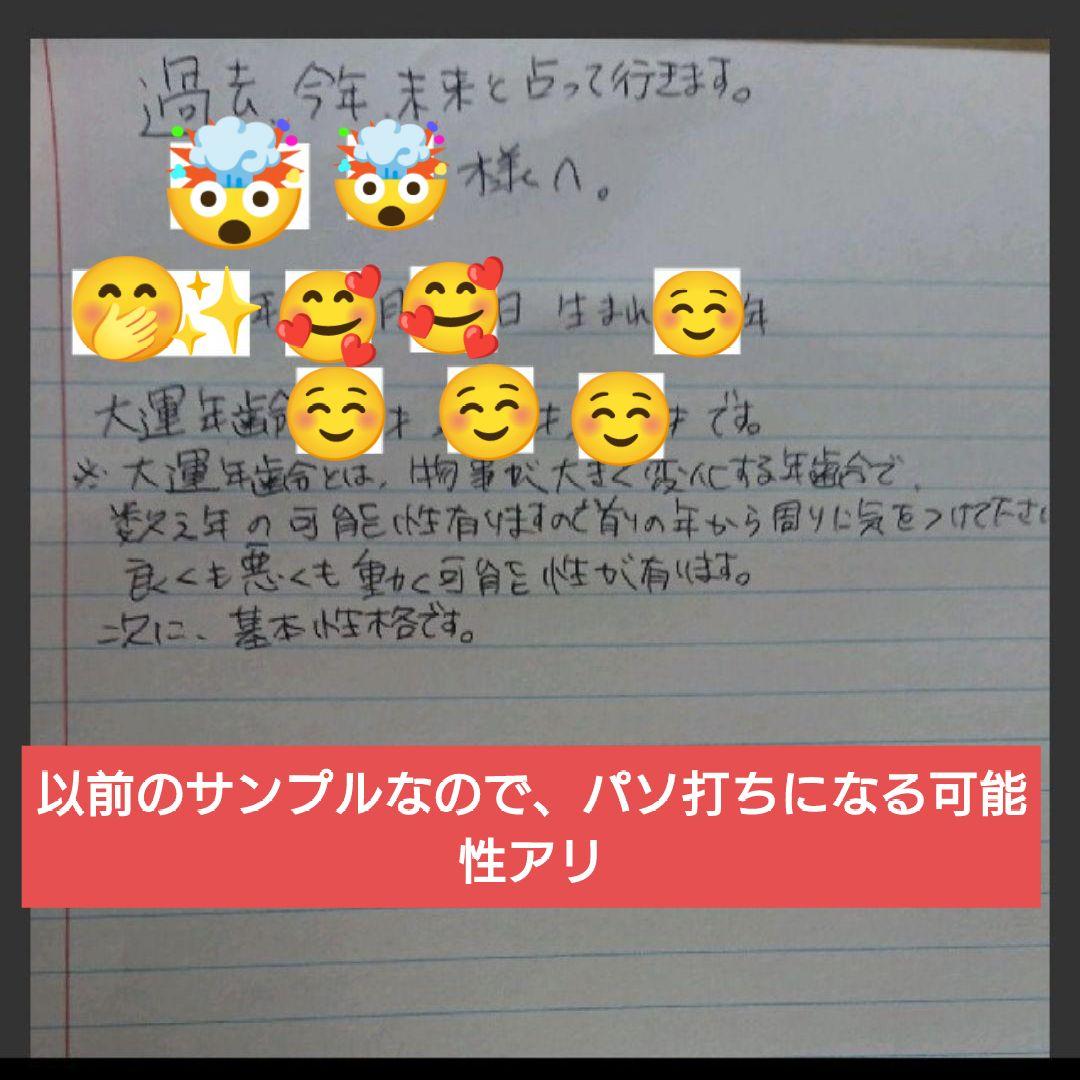 過去、今年、未来と占って行きます。
様へ。
年 月 日 生まれ 年
大運年齢 才、 才、 才です。
※大運年齢とは、物事が大きく変化する年齢で、
数え年の可能性有りますので前の年から周りに気をつけて下さい
良くも悪くも動く可能性が有ります。
次に、基本性格です。
以前のサンプルなので、パソ打ちになる可能
性アリ